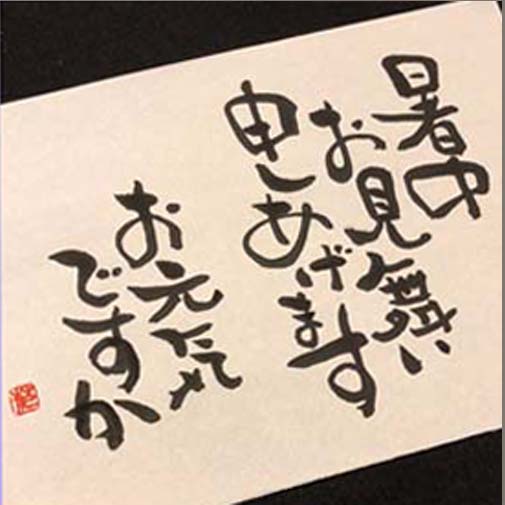 暑中
お見舞い
申しあげます
お元気
ですか